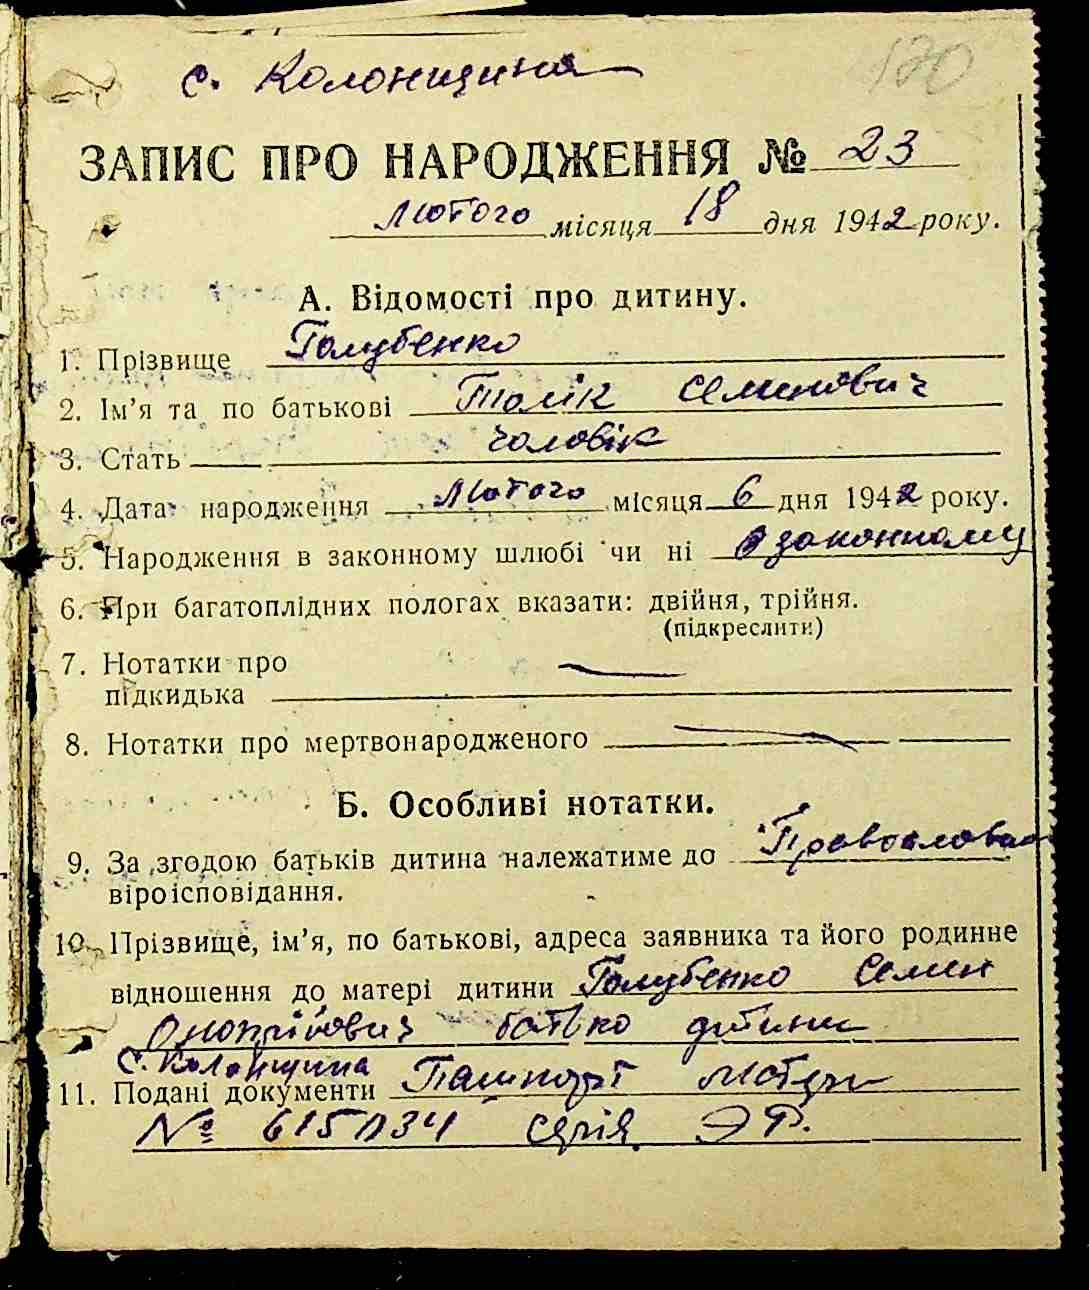 с. Колонщина
170
ЗАПИС ПРО НАРОДЖЕННЯ № 23
Лютого місяця 18 дня 1942 року.
А. Відомості про дитину.
1. Прізвище Голубенко
2. Ім'я та по батькові Толік Семинович
3. Стать чоловік
4. Дата народження Лютого місяця 6 дня 1942 року.
5. Народження в законному шлюбі чи ні в законному
6. При багатоплідних пологах вказати: двійня, трійня.
(підкреслити)
7. Нотатки про
підкидька
8. Нотатки про мертвонародженого
Б. Особливі нотатки.
9. За згодою батьків дитина належатиме до
віроісповідання.
10. Прізвище, ім'я, по батькові, адреса заявника та його родинне
відношення до матері дитини Голубенко Семен
батько дитини
с. Колонщина
11. Подані документи Пашпорт матери
№ серія ЭР.